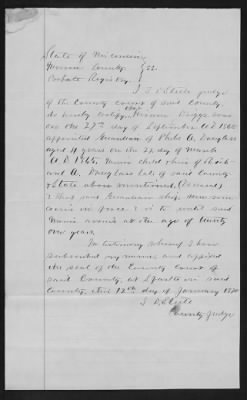 State of Wisconsin
Monroe County } SS.
Probate Register
I, T. D. Steele judge
of the County Court of said County
do hereby certify that Hiram Driggs was
on the 27th day of September A.D. 1865
appointed Guardian of Philo A. Douglass
aged 4 years on the 27 day of March
A. D. 1865, Minor child heir of
A. Douglass late of said County
& State above mentioned, (Deceased)
& that said Guardian ship now rem-
ains in force & is to until said
Minor arrives at the age of twenty
one years.
In testimony whereof I have
subscribed my name and affixed
the seal of the County Court of
said County, at Sparta in said
County, this 12th day of January 1870
T. D. Steele
County Judge